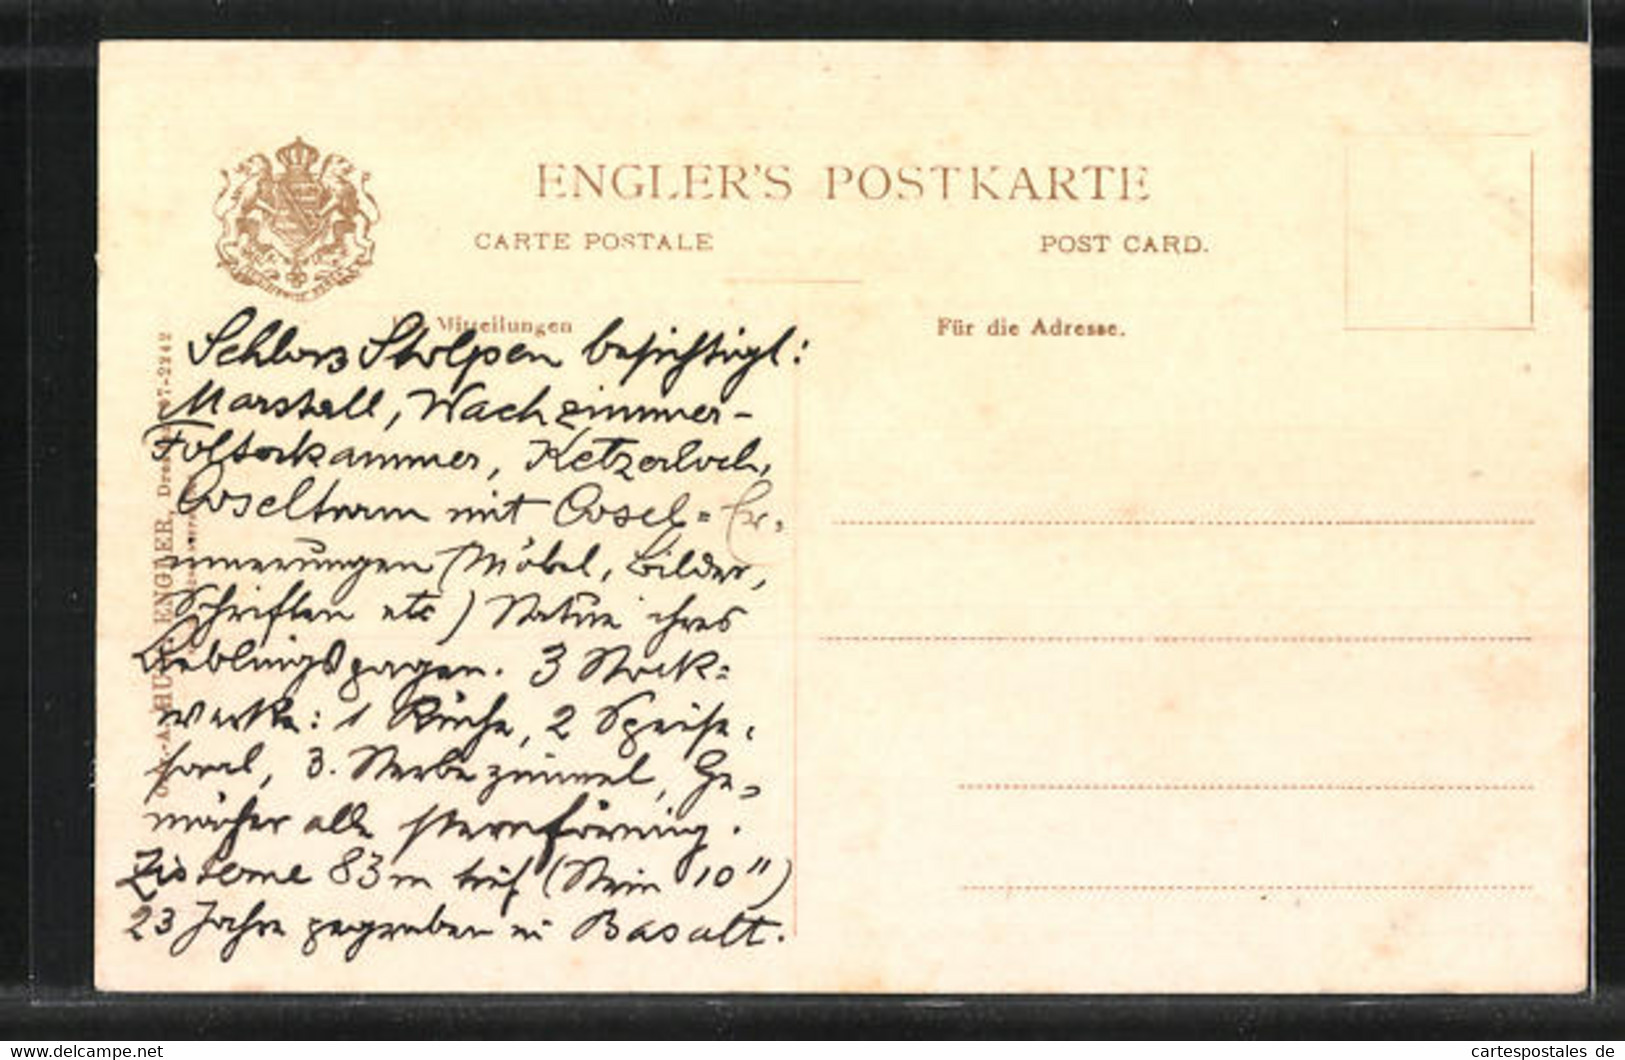 ENGLER'S POSTKARTE
CARTE POSTALE
POST CARD.
Für Mitteilungen
Für die Adresse.
Schloss Stolpen besichtigt:
Marstall, Wachzimmer-
Folterkammer, Ketzerloch,
Coselturm mit Cosel= Er=
innerungen (Möbel, Bilder,
Schriften etc) Statue ihres
Lieblingspagen. 3 Stock=
werke: 1 Küche, 2 Speise=
saal, 3. Sterbezimmer, Ge=
mächer alle sternförmig.
Zisterne 83 m tief (Stein 10")
23 Jahre gegraben in Basalt.
ENGLER, 07-2242
cartespostales de
www.cartespostales.de